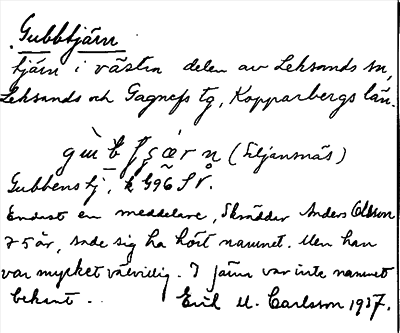 Gubbtjärn
tjärn i västra delen av Leksands sn,
Leksands och Gagnefs tg, Kopparbergs län.
(Siljansnäs)
Gubbens tj, k G96 S V.
Endast en meddelare, Skrädder Anders Olsson
75 år, sade sig ha hört namnet. Men han
var mycket välvillig. I Järna var inte namnet
bekant. Erik M. Carlsson 1937.